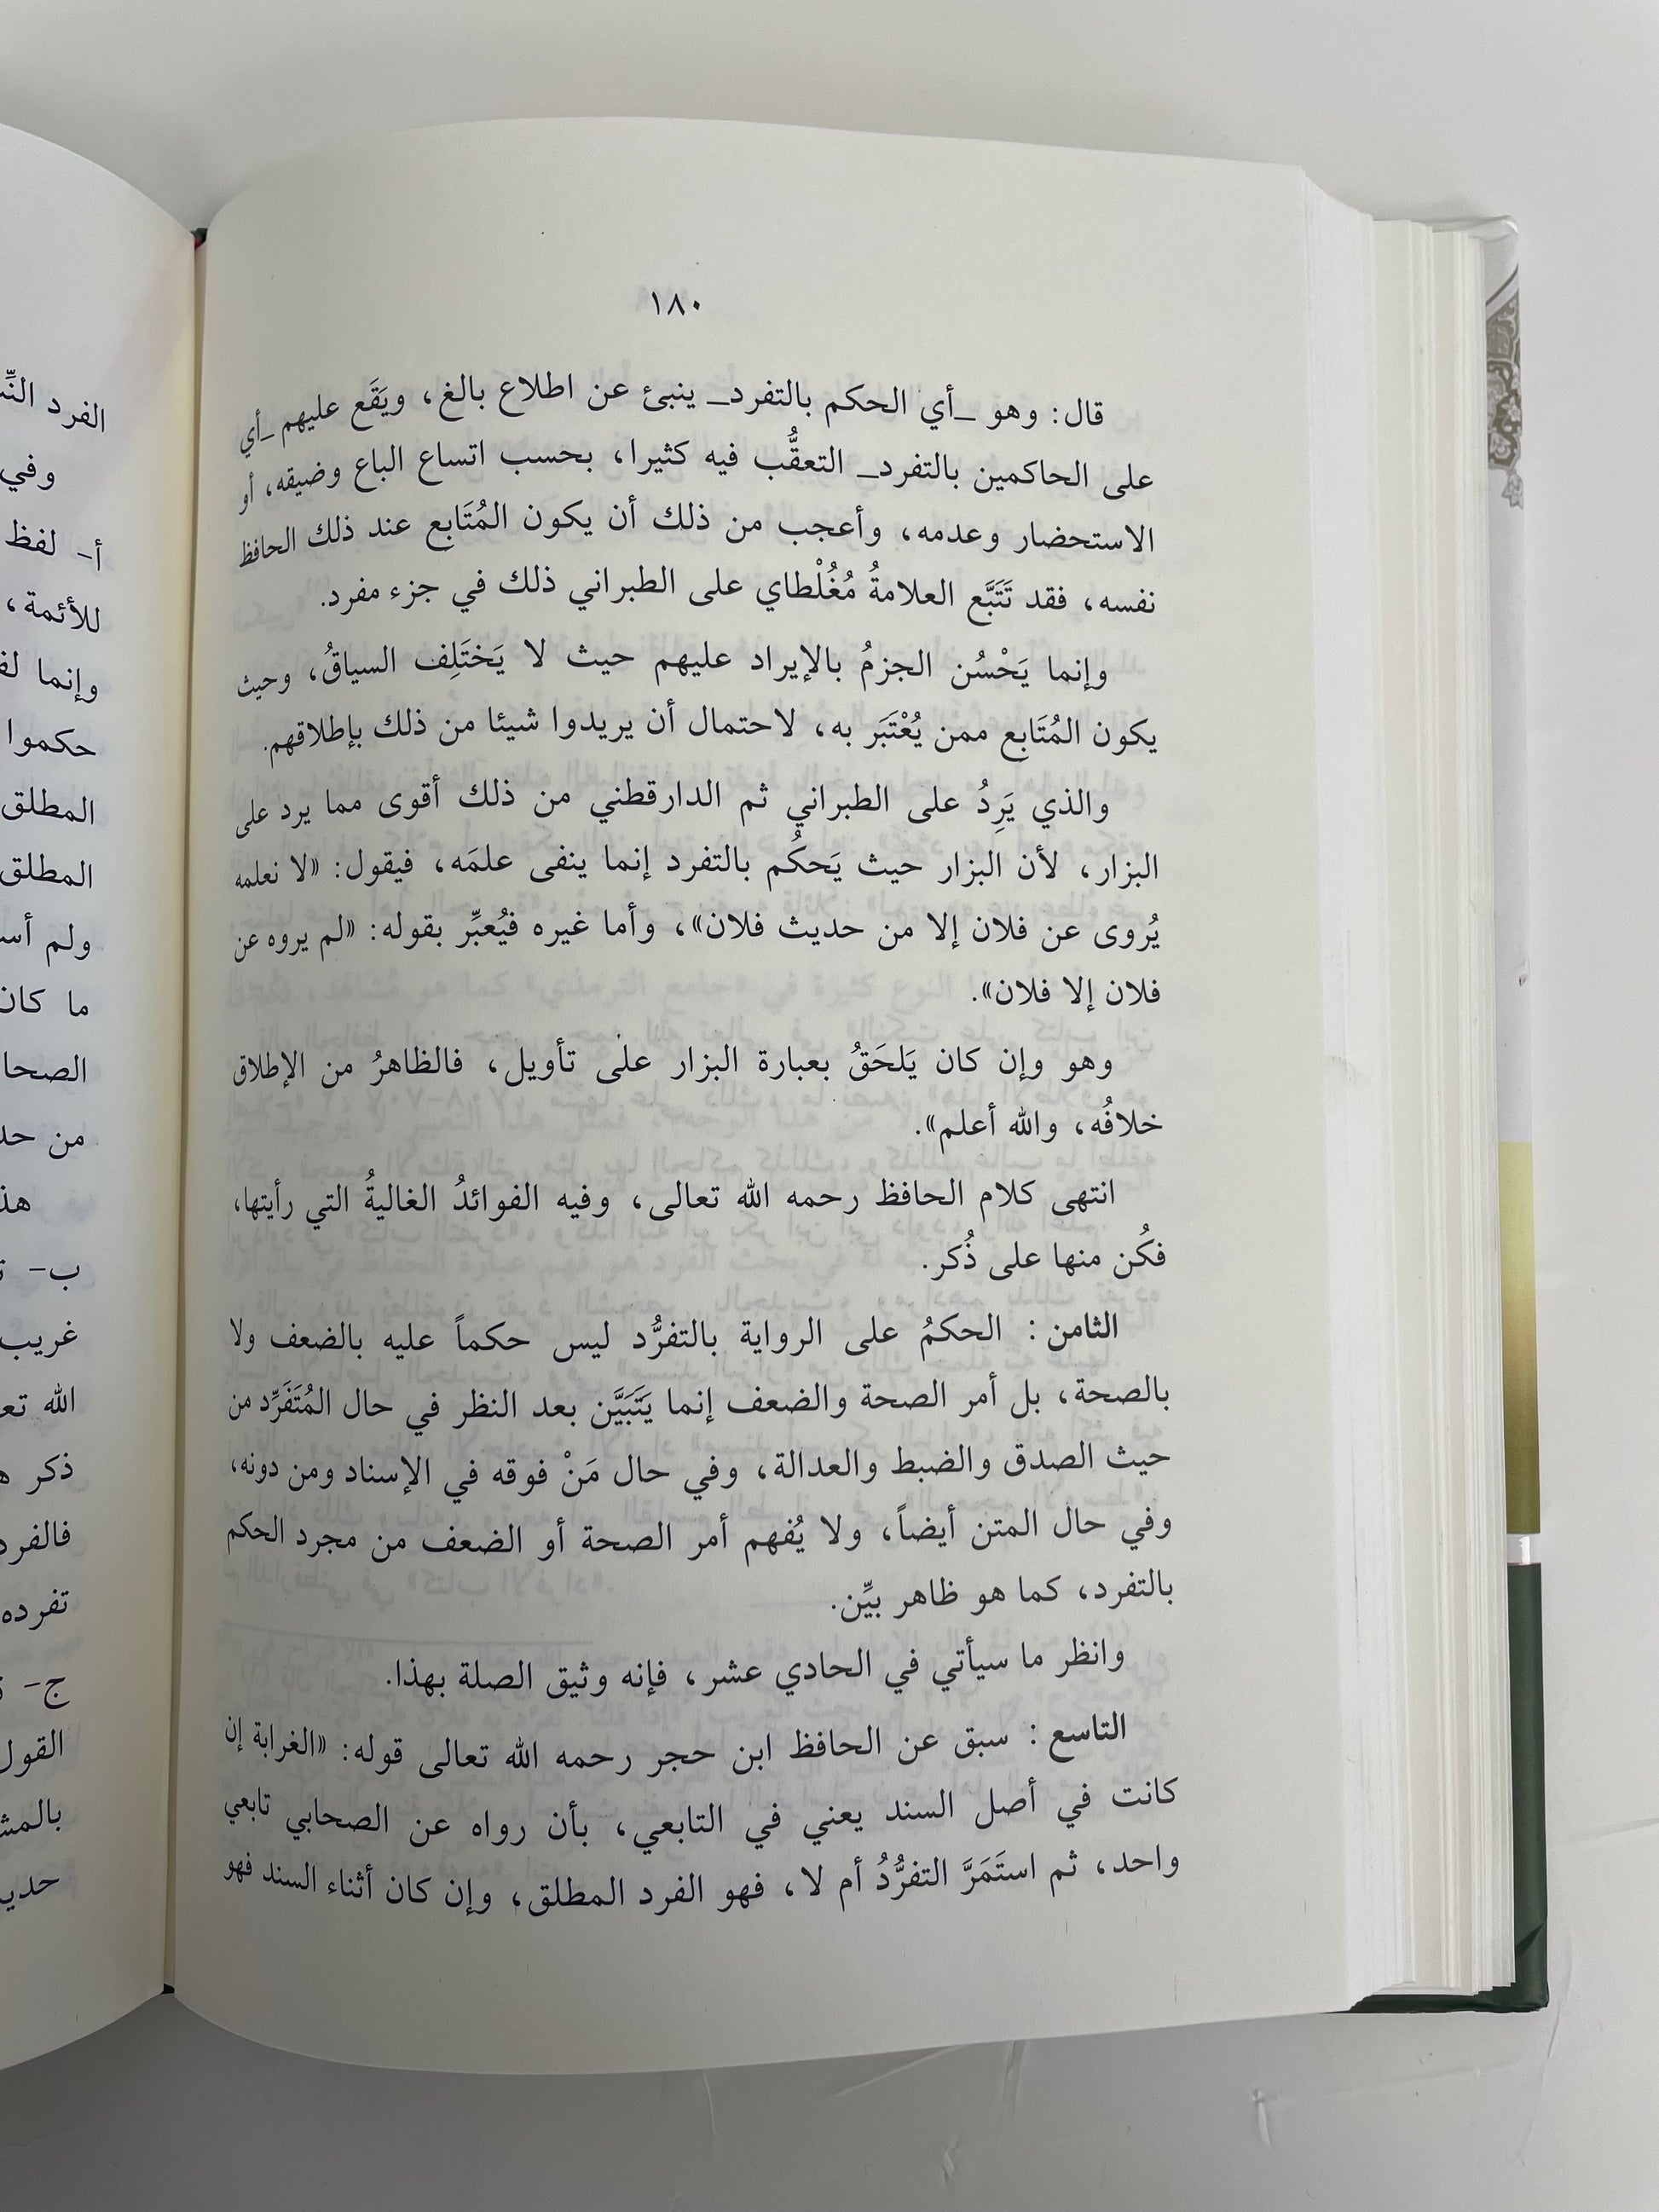 ١٨٠
قال: وهو _أي الحكم بالتفرد_ ينبئ عن اطلاع بالغ، ويَقَع عليهم _أي
على الحاكمين بالتفرد_ التعقُّب فيه كثيرا، بحسب اتساع الباع وضيقه، أو
الاستحضار وعدمه، وأعجب من ذلك أن يكون المُتَابِع عند ذلك الحافظ
نفسه، فقد تَتَبَّع العلامةُ مُغُلْطاي على الطبراني ذلك في جزء مفرد.
وإنما يَحْسُن الجزمُ بالإيراد عليهم حيث لا يَختَلِف السياقُ، وحيث
يكون المُتَابع ممن يُعْتَبَر به، لاحتمال أن يريدوا شيئا من ذلك بإطلاقهم.
والذي يَرِدُ على الطبراني ثم الدارقطني من ذلك أقوى مما يرد على
البزار، لأن البزار حيث يَحكُم بالتفرد إنما ينفى علمَه، فيقول: «لا نعلمه
يُروى عن فلان إلا من حديث فلان»، وأما غيره فيُعبِّر بقوله: «لم يروه عن
فلان إلا فلان».
وهو وإن كان يَلحَقُ بعبارة البزار على تأويل، فالظاهرُ من الإطلاق
خلافُه، والله أعلم».
انتهى كلام الحافظ رحمه الله تعالى، وفيه الفوائدُ الغاليةُ التي رأيتها،
فكُن منها على ذُكر.
الثامن : الحكمُ على الرواية بالتفرُّد ليس حكماً عليه بالضعف ولا
بالصحة، بل أمر الصحة والضعف إنما يَتَبَيَّن بعد النظر في حال المُتَفَرِّد من
حيث الصدق والضبط والعدالة، وفي حال مَنْ فوقه في الإسناد ومن دونه،
وفي حال المتن أيضاً، ولا يُفهم أمر الصحة أو الضعف من مجرد الحكم
بالتفرد، كما هو ظاهر بيِّن.
وانظر ما سيأتي في الحادي عشر، فإنه وثيق الصلة بهذا.
التاسع : سبق عن الحافظ ابن حجر رحمه الله تعالى قوله: «الغرابة إن
كانت في أصل السند يعني في التابعي، بأن رواه عن الصحابي تابعي
واحد، ثم استَمَرَّ التفرُّدُ أم لا، فهو الفرد المطلق، وإن كان أثناء السند فهو
الفرد
وفي
أ- لفظ
للأئمة،
وإنما
حكموا
المطلق
المطلق
ولم
ما كان
من
ب-
غريب
الله
ذكر
تفرده
ج-
القول